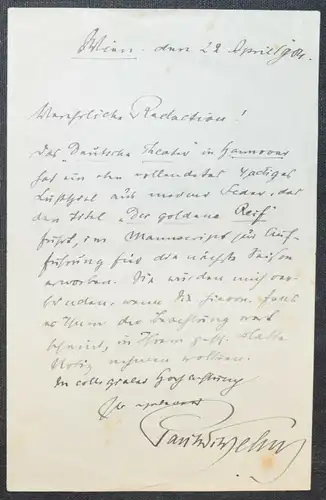 Wien, den 22 April 904.
Verehrliche Redaction!
Das "Deutsche Theater" in Hannover
hat ein eben vollendetes 4actiges
Lustspiel aus meiner Feder, das
den Titel "Der goldene Reif"
führt, im Manuscript zur Auf-
führung für die nächste Saison
erworben. Sie würden mich ver-
binden, wenn Sie hievon, falls
es Ihnen der Beachtung wert
scheint, in Ihrem gesch. Blatte
Notiz nehmen wollten.
In collegialer Hochachtung
Ihr ergebener